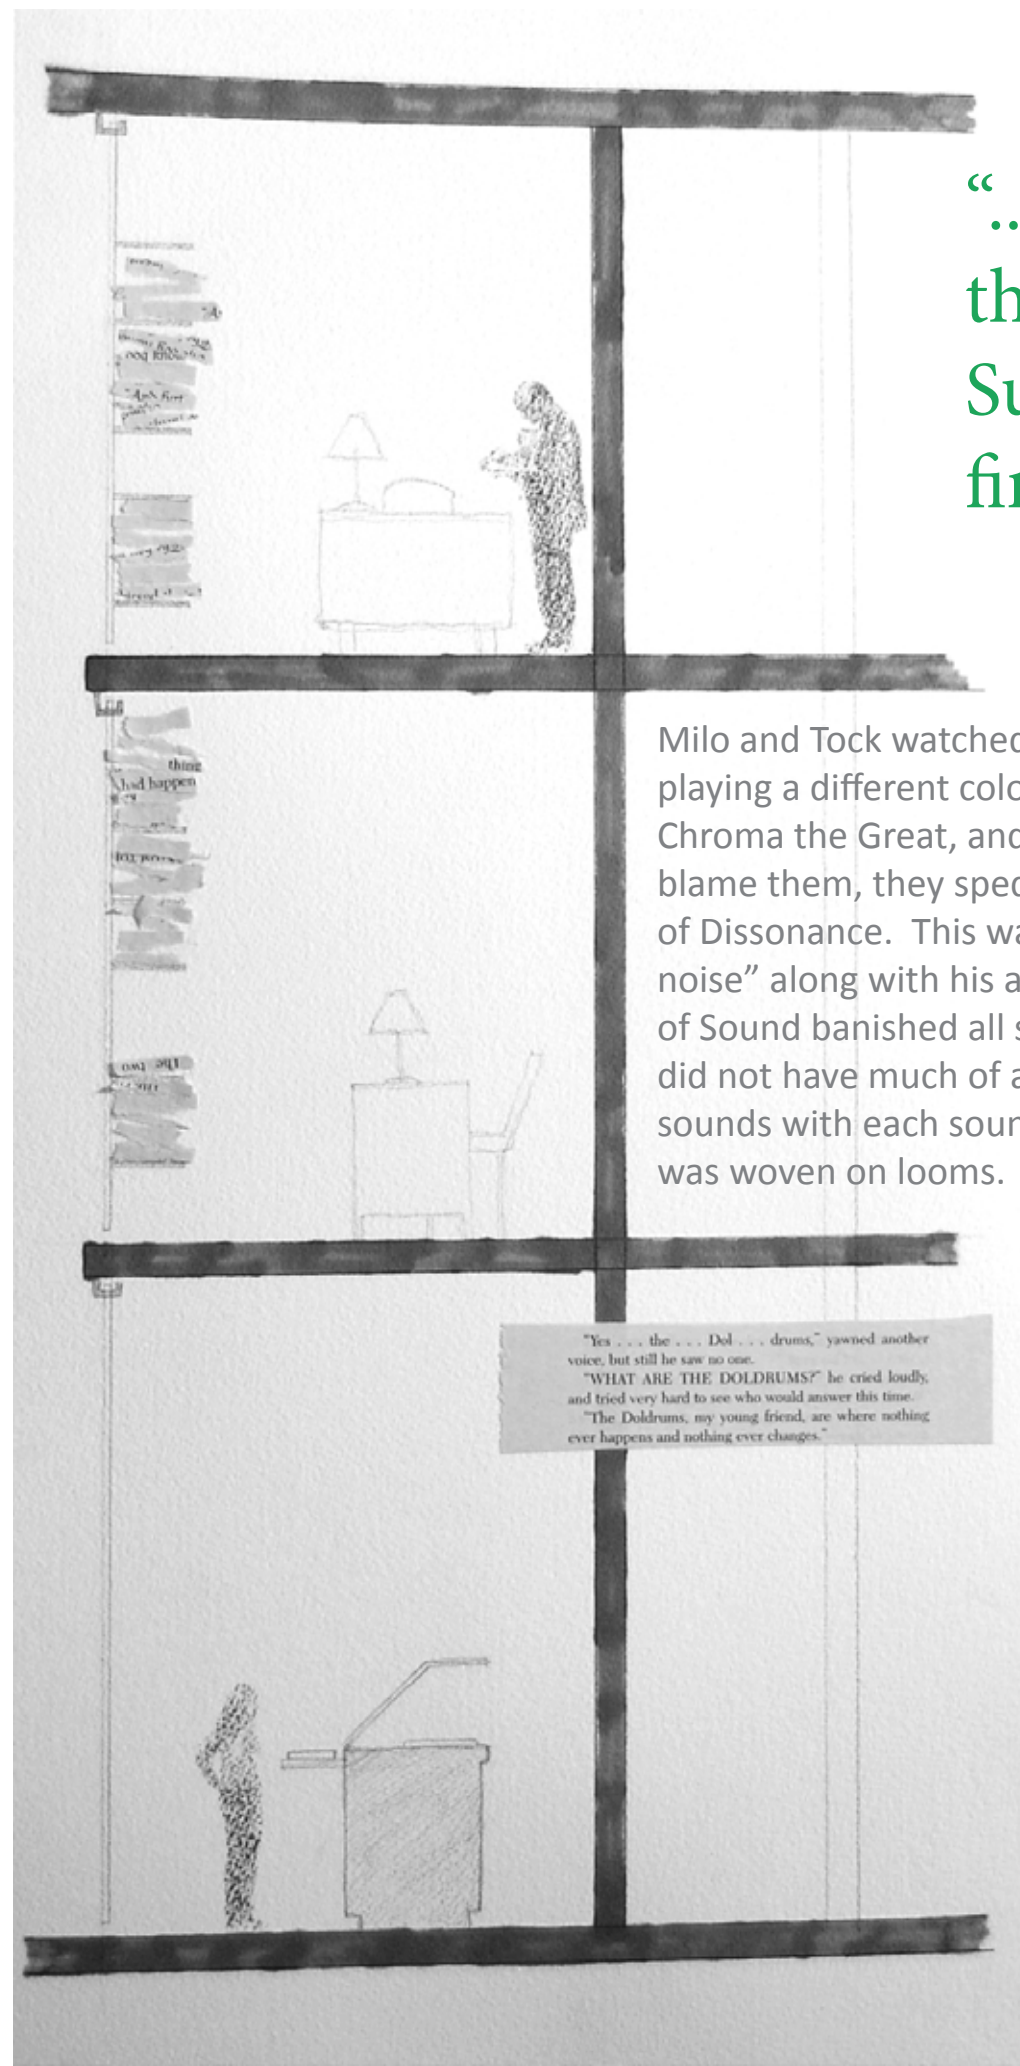 “..
th
Su
fin
"And first
thing
had happen
The two
Milo and Tock watched
playing a different colo
Chroma the Great, and
blame them, they spec
of Dissonance.  This wa
noise” along with his a
of Sound banished all s
did not have much of a
sounds with each soun
was woven on looms.
"Yes . . . the . . . Dol . . . drums," yawned another
voice, but still he saw no one.
"WHAT ARE THE DOLDRUMS?" he cried loudly,
and tried very hard to see who would answer this time.
"The Doldrums, my young friend, are where nothing
ever happens and nothing ever changes."